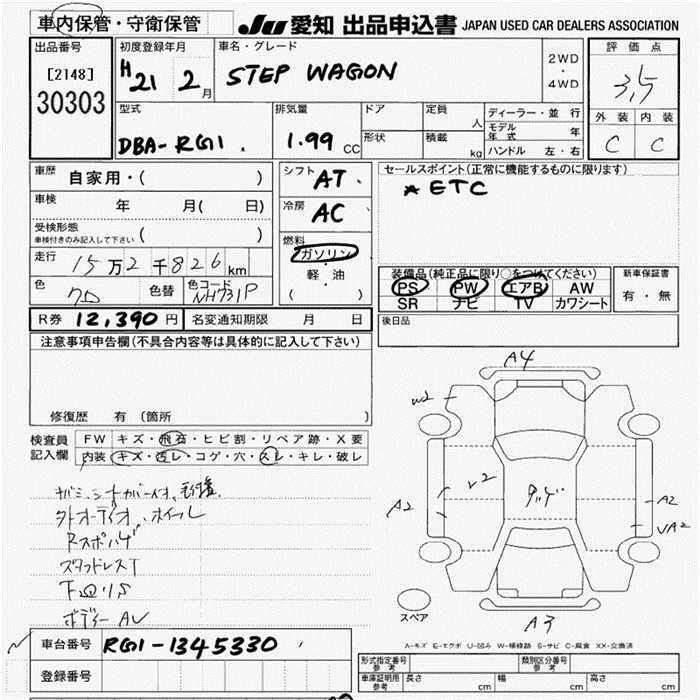 車内保管・守衛保管
JU 愛知 出品申込書 JAPAN USED CAR DEALERS ASSOCIATION
出品番号 [2148] 30303
初度登録年月 H21 2月
車名・グレード STEP WAGON
2WD・4WD
評価点 3.5
外装 内装
C C
型式 DBA-RG1
排気量 1.99 CC
ドア 形状
定員 人
積載 kg
ディーラー・並行
モデル年式 年
ハンドル 左・右
車歴 自家用・( )
車検 年 月( 日)
受検形態 車検付きのみ記入して下さい ( )
走行 15万2千826km
色 色替 色コード NH731P
シフト AT
冷房 AC
燃料 ガソリン
軽・油
( )
セールスポイント(正常に機能するものに限ります)
ETC
装備品(純正品に限り○をつけてください)
PS PW エアB AW
SR ナビ TV カワシート
新車保証書
有・無
R券 12,390円 名変通知期限 月 日
後日品
注意事項申告欄(不具合内容等は具体的に記入して下さい)
修復歴 有(箇所 )
検査員記入欄
FW キズ・飛石・ヒビ割・リペア跡・X要
内装 キズ・汚レ・コゲ・穴・スレ・キレ・破レ
外オーディオ、ホイール
Rスポハゲ
スタッドレスT
ボディー AU
A4
W2
A2
A2
A3
スペア
A-キズ E-エクボ U-凹み W-補修跡 S-サビ C-腐食 XX-交換済
車台番号 RG1-1345330
登録番号
型式指定番号 参考
類別区分番号 参考
車庫証明用 参考 長さ cm 幅 cm 高さ cm